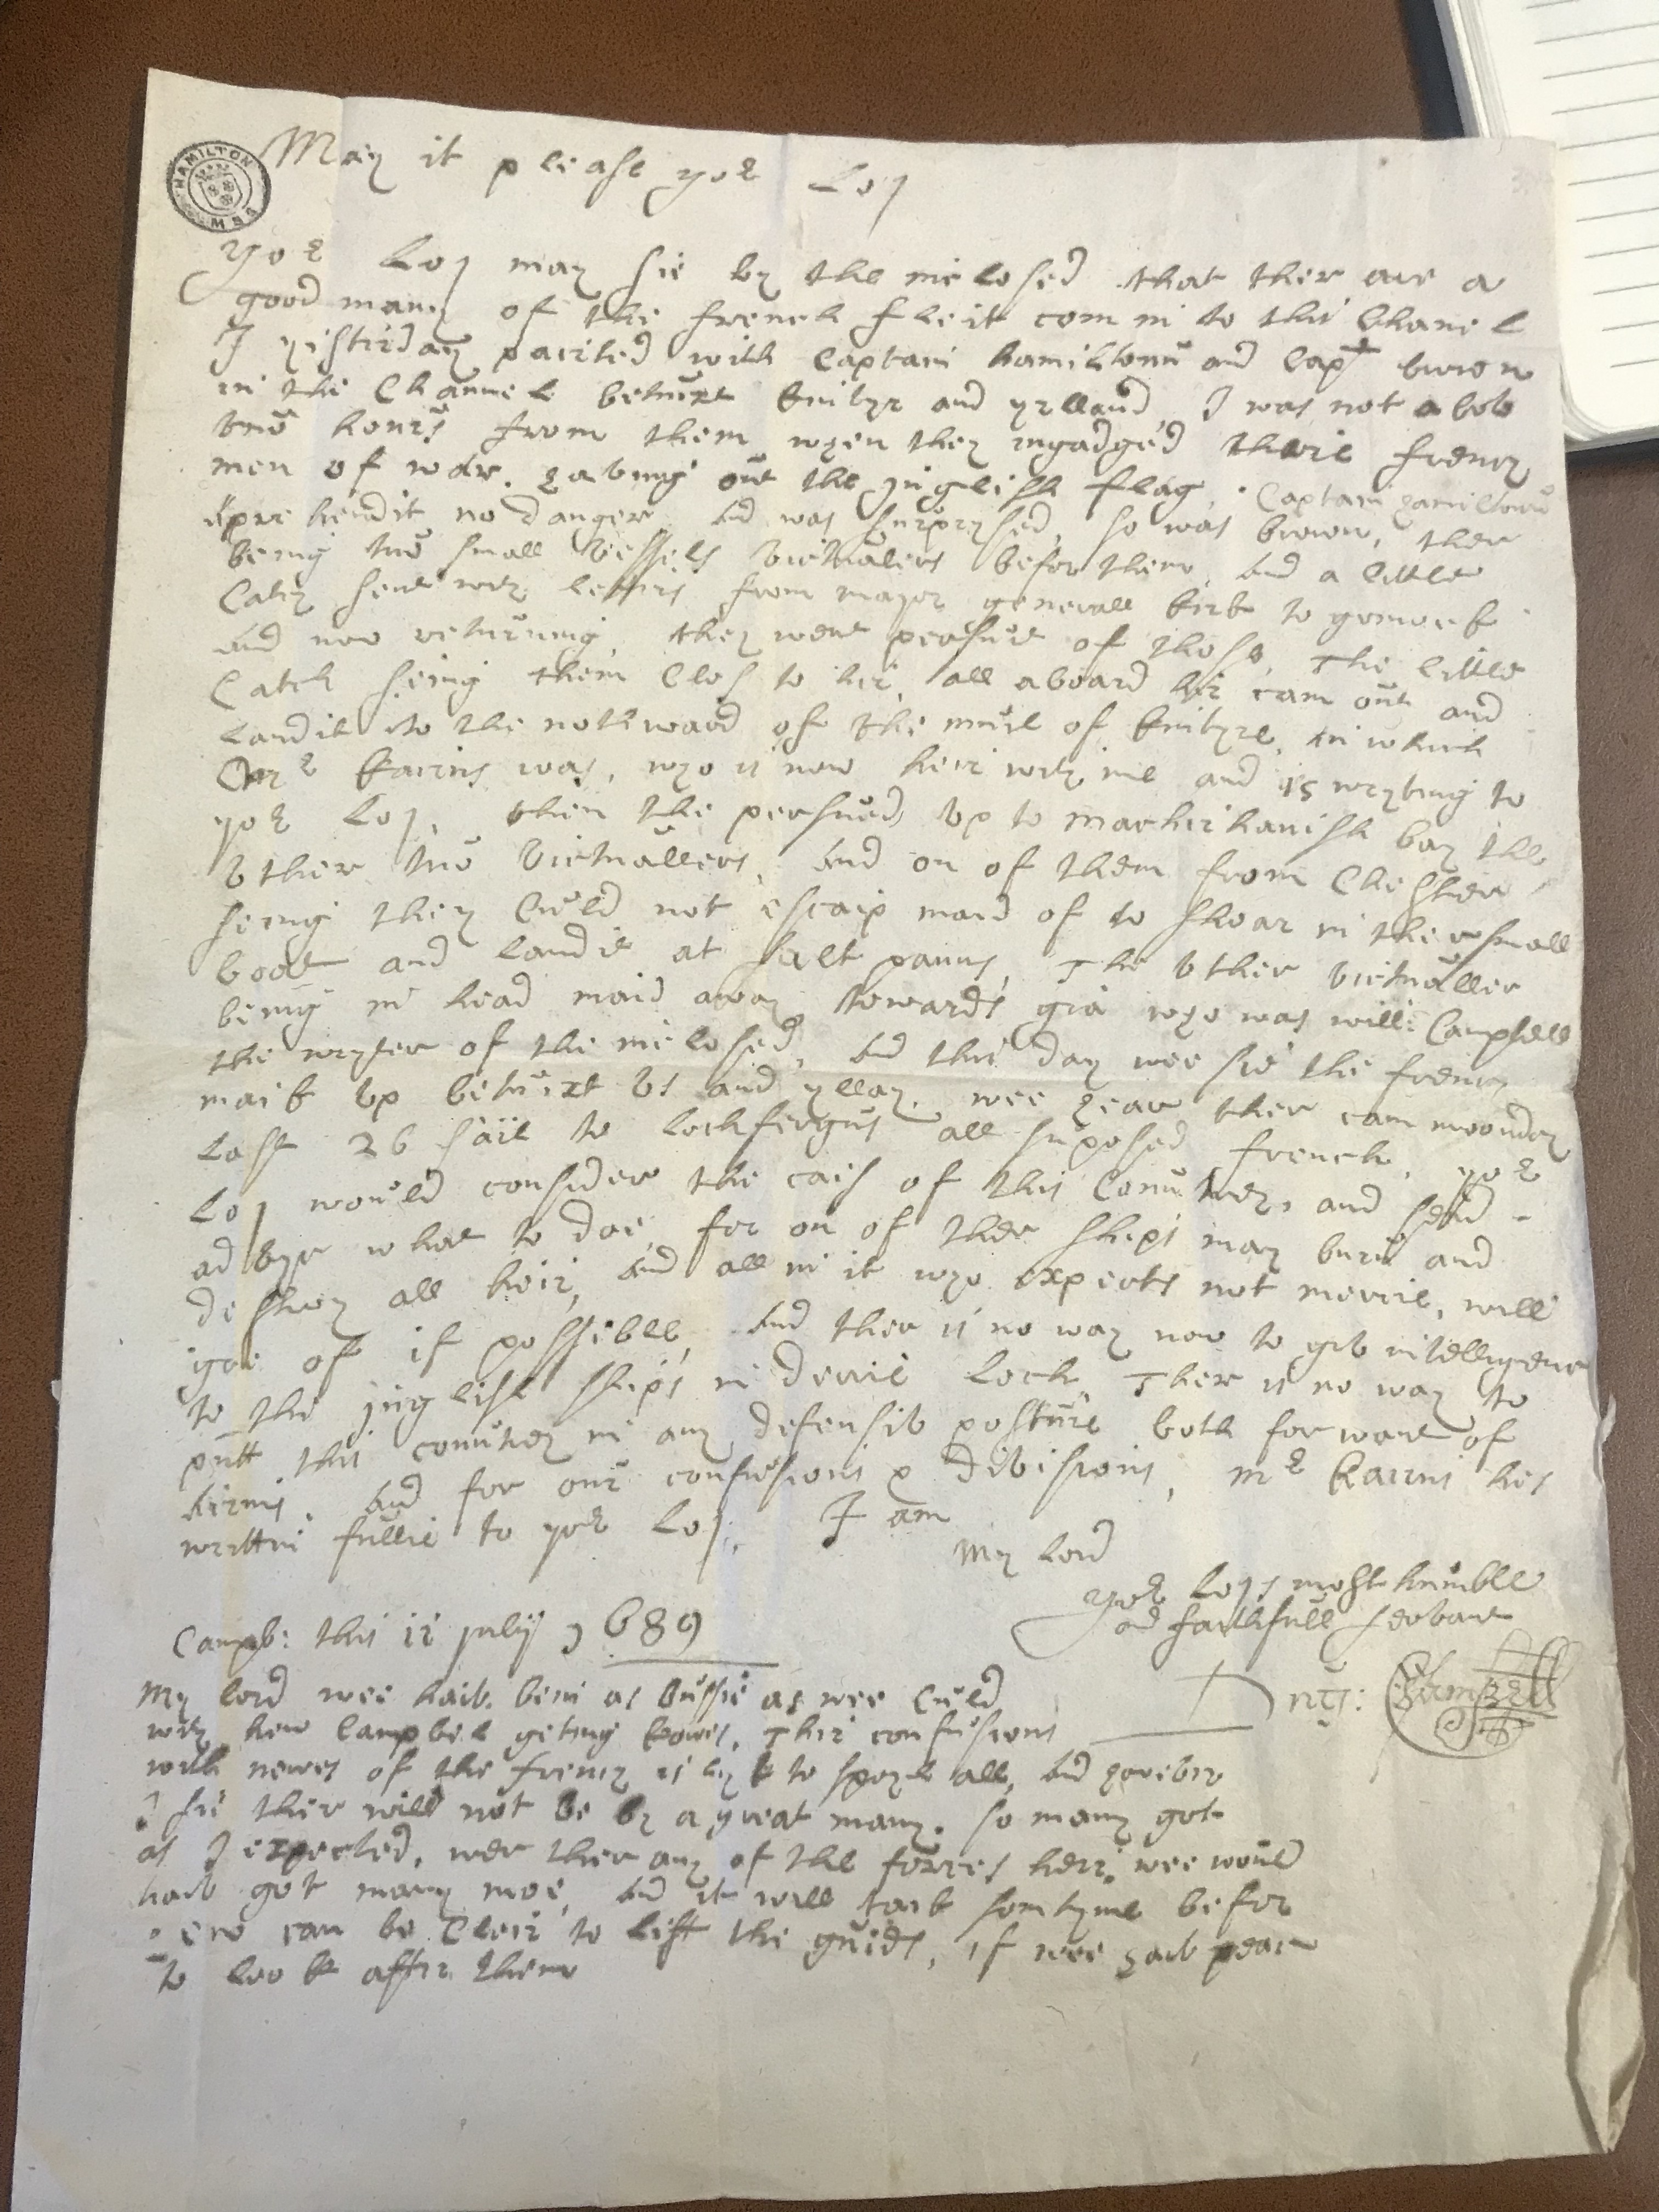 HAMILTON MSS
May it please yor Lop
Yor Lop may sie by the inclosed that ther are a
good many of the french fleit com in to this Chanel
I yisterday pairted with Captain hamiltoun and Capt brown
in the Channel betuixt Kintyr and yrlland, I was not abov
tuo hours from them wyen they ingadged thrie frency
men of war. having out the jnglish flag. Captain hamiltoun
apprehendit no danger and was surprysed, so was brown, ther
being tuo small vessels victualers befor them, and a little
Catcy sent wty letters from major generall kirk to
and now returning, they went persute of thoss, The little
Catch seing them Clos to hir, all aboard hir cam out and
landit to the nothward of the mule of Kintyre, in which
Mr Kairns was, wyo is now heir wty me and is wryting to
yor Lop, then the persued up to machirhanish bay the
uther tuo victuallers, and on of them from Chester
seing they Culd not escaip maid of to shoar in ther small
boat and landit at salt panns, The uther victualler
being in head maid away towards gia wyo was will: Campbell
the wryter of the inclosed, and this day wee sie the frency
mack up betuixt us and yllay, wee hear ther cam moonday
last 26 sail to lochfergus all suposed french, yor
Lop would consider the cais of this Countrey, and send
advyse what to doe, for on of ther ships may burn and
destroy all heir, and all in it wyo expects not mercie, will
goe of if possible, and ther is no way now to give intelligence
to the jnglish ships in derrie Loch, Ther is no way to
putt this countrey in any defensiv posture both for want of
airms, and for our confusions & divisions, Mr Kairns hes
written fullie to yor Lop, I am
My Lord
yor Lops most humble
and faithfull servant
Campb: this 11 julij 1689
My lord wee haiv bein as bussie as wee Culd
wty new Campbel geting Kowes, Thir confusions
with newes of the frency is lyk to spoyle all, and
I sie ther will not be by a great many, so many got
as I expected, wer ther any of the forces heir wee would
haiv got many moe, and it will taik somtyme befor
wee can be Cleir to lift the guids, if wee haiv peace
to look after them